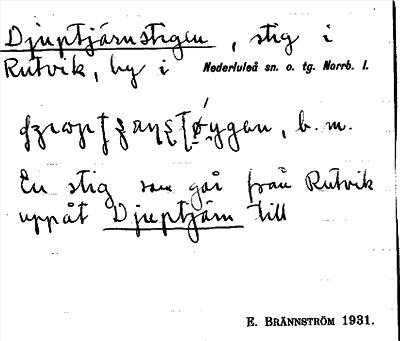 Djuptjärnstigen, stig i
Rutvik, by i Nederluleå sn. o. tg. Norrb. l.
b. m.
En stig som går från Rutvik
uppåt Djuptjärn till
E. BRÄNNSTRÖM 1931.